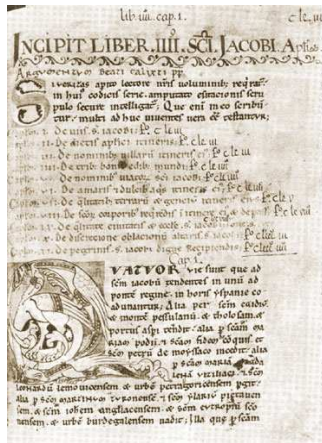 lib. iiii. cap. 1.
INCIPIT LIBER. IIII. SCI. JACOBI. Apli.
Argumentum beati calixti pp.
Si veritas apto lectore nris voluminib; reqrat.
in hui codicis serie. amputato esitationis scru
pulo secure intelligat; Que eni in eo scribu
tur. multi adhuc viventes vera ee testantur;
De viis. s. iacobi.
De dietis aplici itineris.
De nominib; villaru itineris
De trib; bonis edib; mundi.
De nominib; viatoz. sci iacobi.
De amaris & dulcib; aqs itineris
De qlitatib; terraru & gentiu itiner
De scoz corporib; reqrdis i itinere ei, & de
De qlitate civitatis & eccle. s. iacobi.
De discretione oblationu altaris. s. iacobi
De pegrinis. s. iacobi digne Recipiendis.
Cap. 1.
QUATUOR vie sunt que ad
scm iacobu tendentes in unu ad
ponte regine. in horis yspanie co
adunantur; Alia per scm egidiu.
& monte pessulanu. & tholosam. &
portus aspi tendit. alia p scam ma
riam podii. & scam fidem
scm petru de moyssaco incedit. alia
p scam maria
lena viziliaci. & scm
leonardu lemovicensem & urbe petragoricensem pgit.
alia p scm martinu turonense. & scm ylariu pictaven
sem. & scm iohem angliacensem. & scm eutropiu sco
nensem. & urbe burdegalensem vadit; Illa que p scam